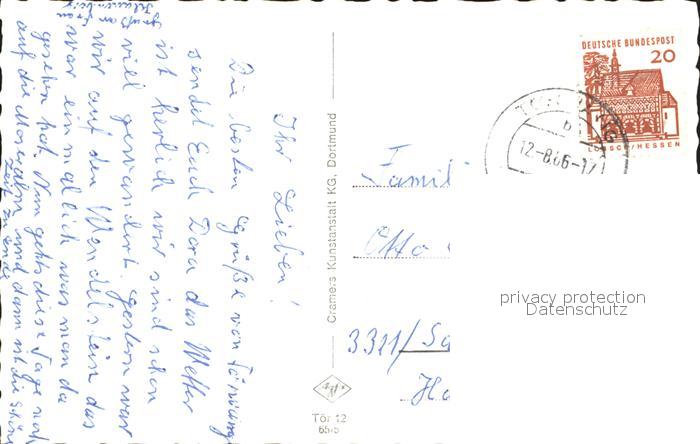 Ihr Lieben!
Die besten Grüße von Törwang
sendet Euch Dora das Wetter
ist herlich wir sind schon
viel gewandert. Gestern war
wir auf den Wendelstein das
war ein malich was man da
gesehen hat. Nun gehts diese Tage noch
auf die und dann ist die schön
Zeit zu Ende
Gruß an Frau
Cramers Kunstanstalt KG, Dortmund
Tör 12
65/5
DEUTSCHE BUNDESPOST
20
LORSCH/HESSEN
b
12-8.66-17
Famil
Otto
3311/ Sa
Ha
privacy protection
Datenschutz